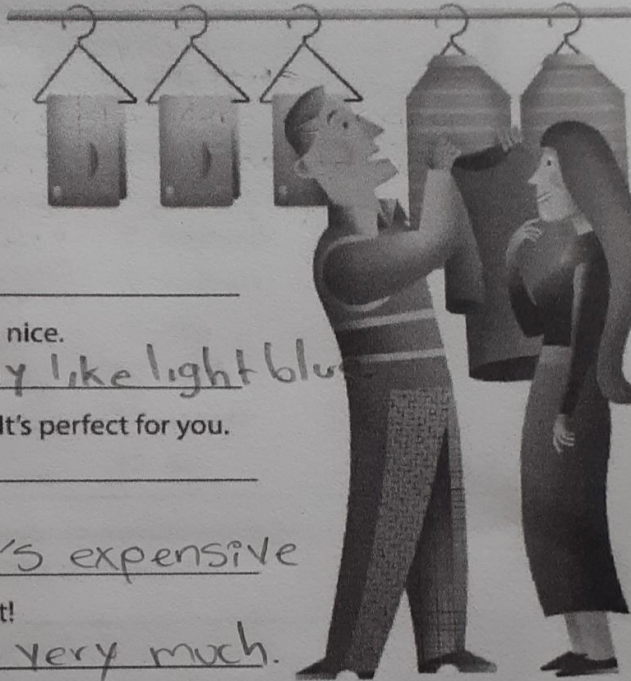 nice.
y like light blue
It's perfect for you.
's expensive
t!
very much.